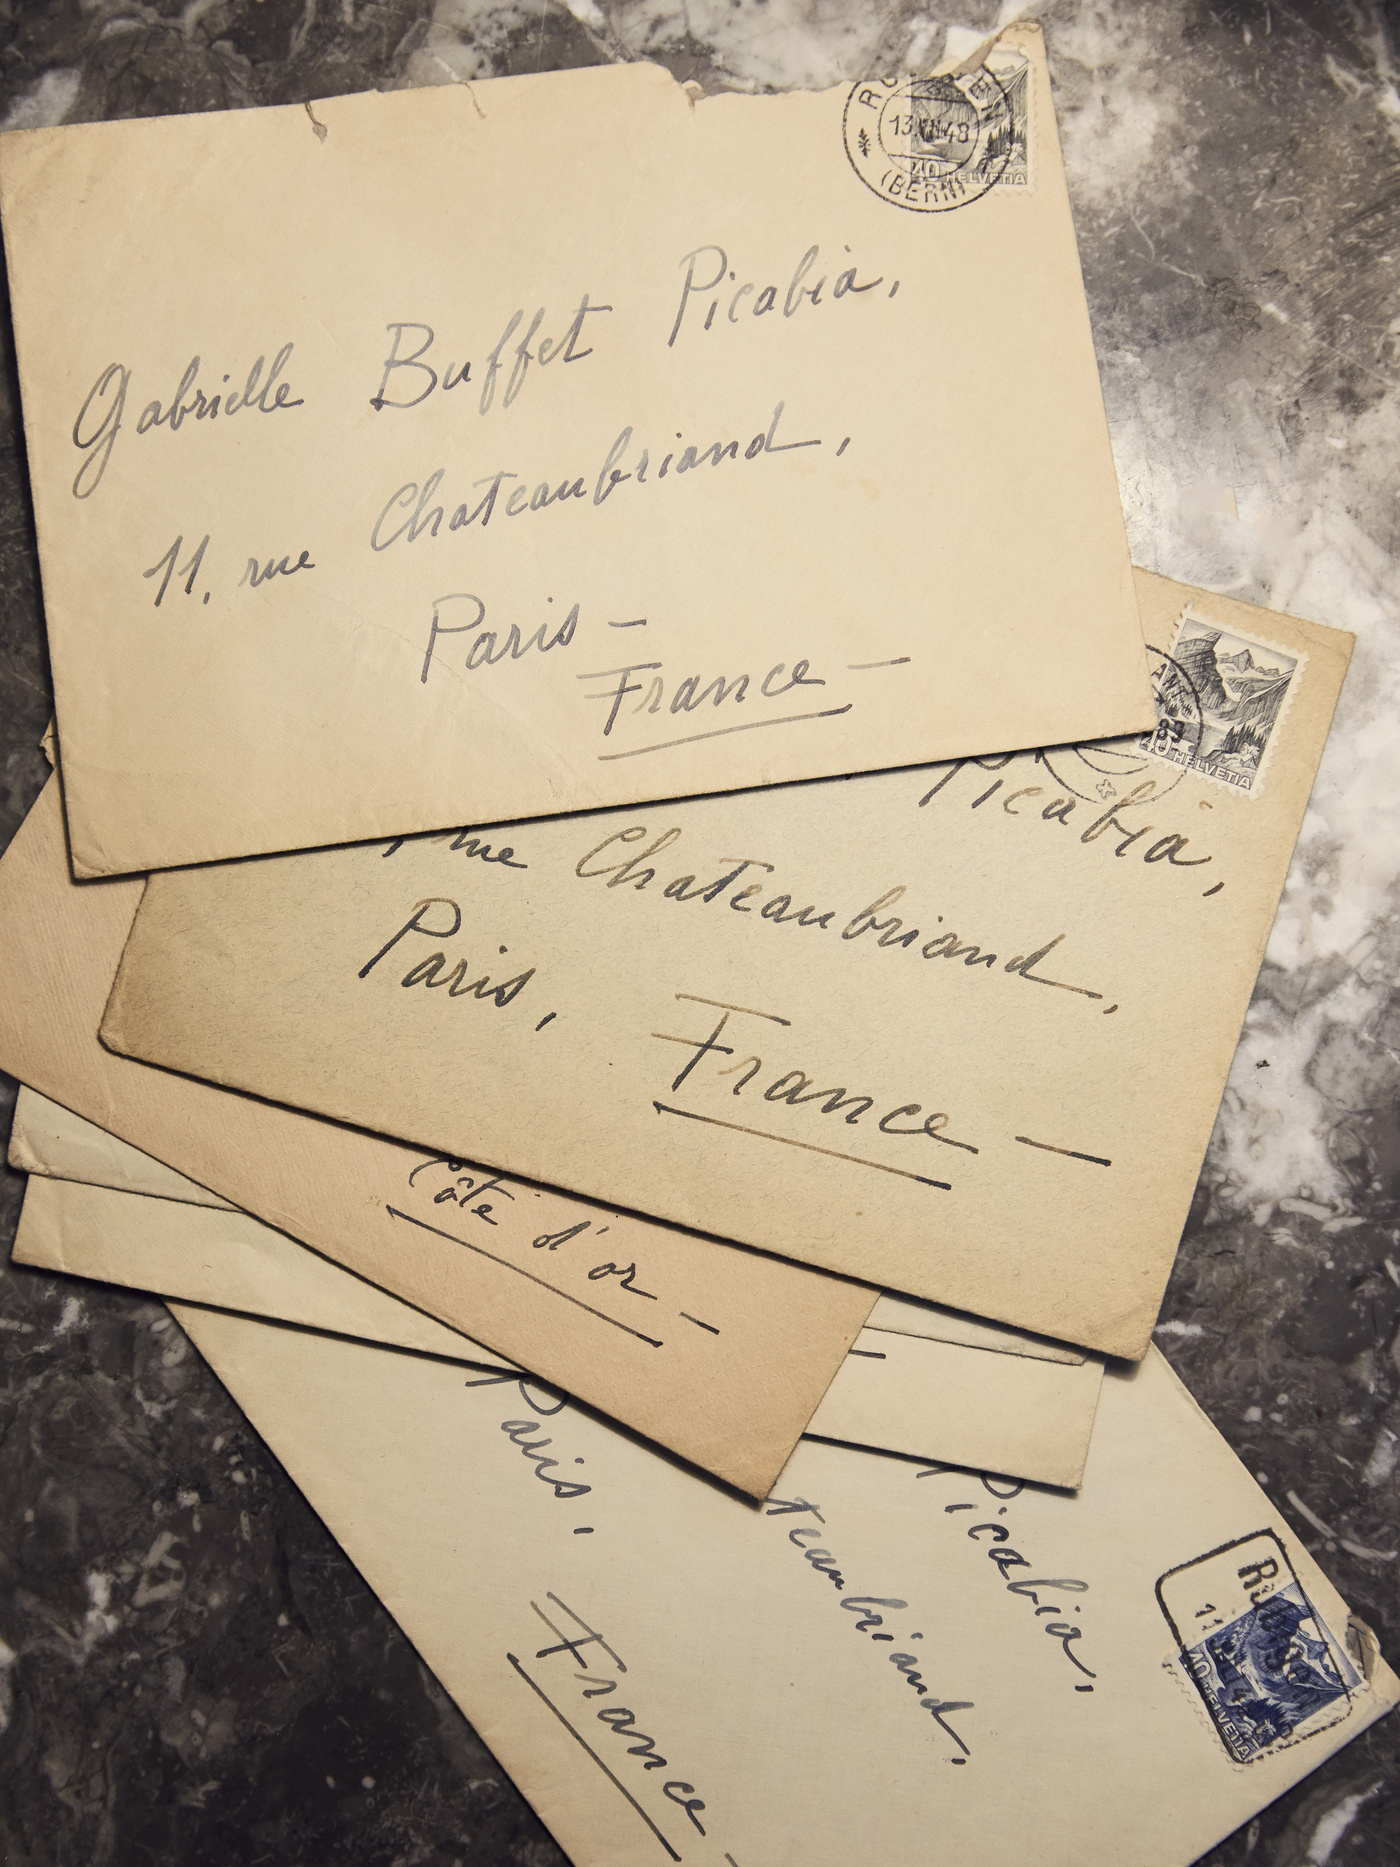 (BERN)
40 HELVETIA
Gabrielle Buffet Picabia,
11, rue Chateaubriand,
Paris –
France –
40 HELVETIA
Picabia,
, rue Chateaubriand,
Paris,
France –
Côte d'or –
Picabia,
teaubriand,
Paris,
France –
40 HELVETIA